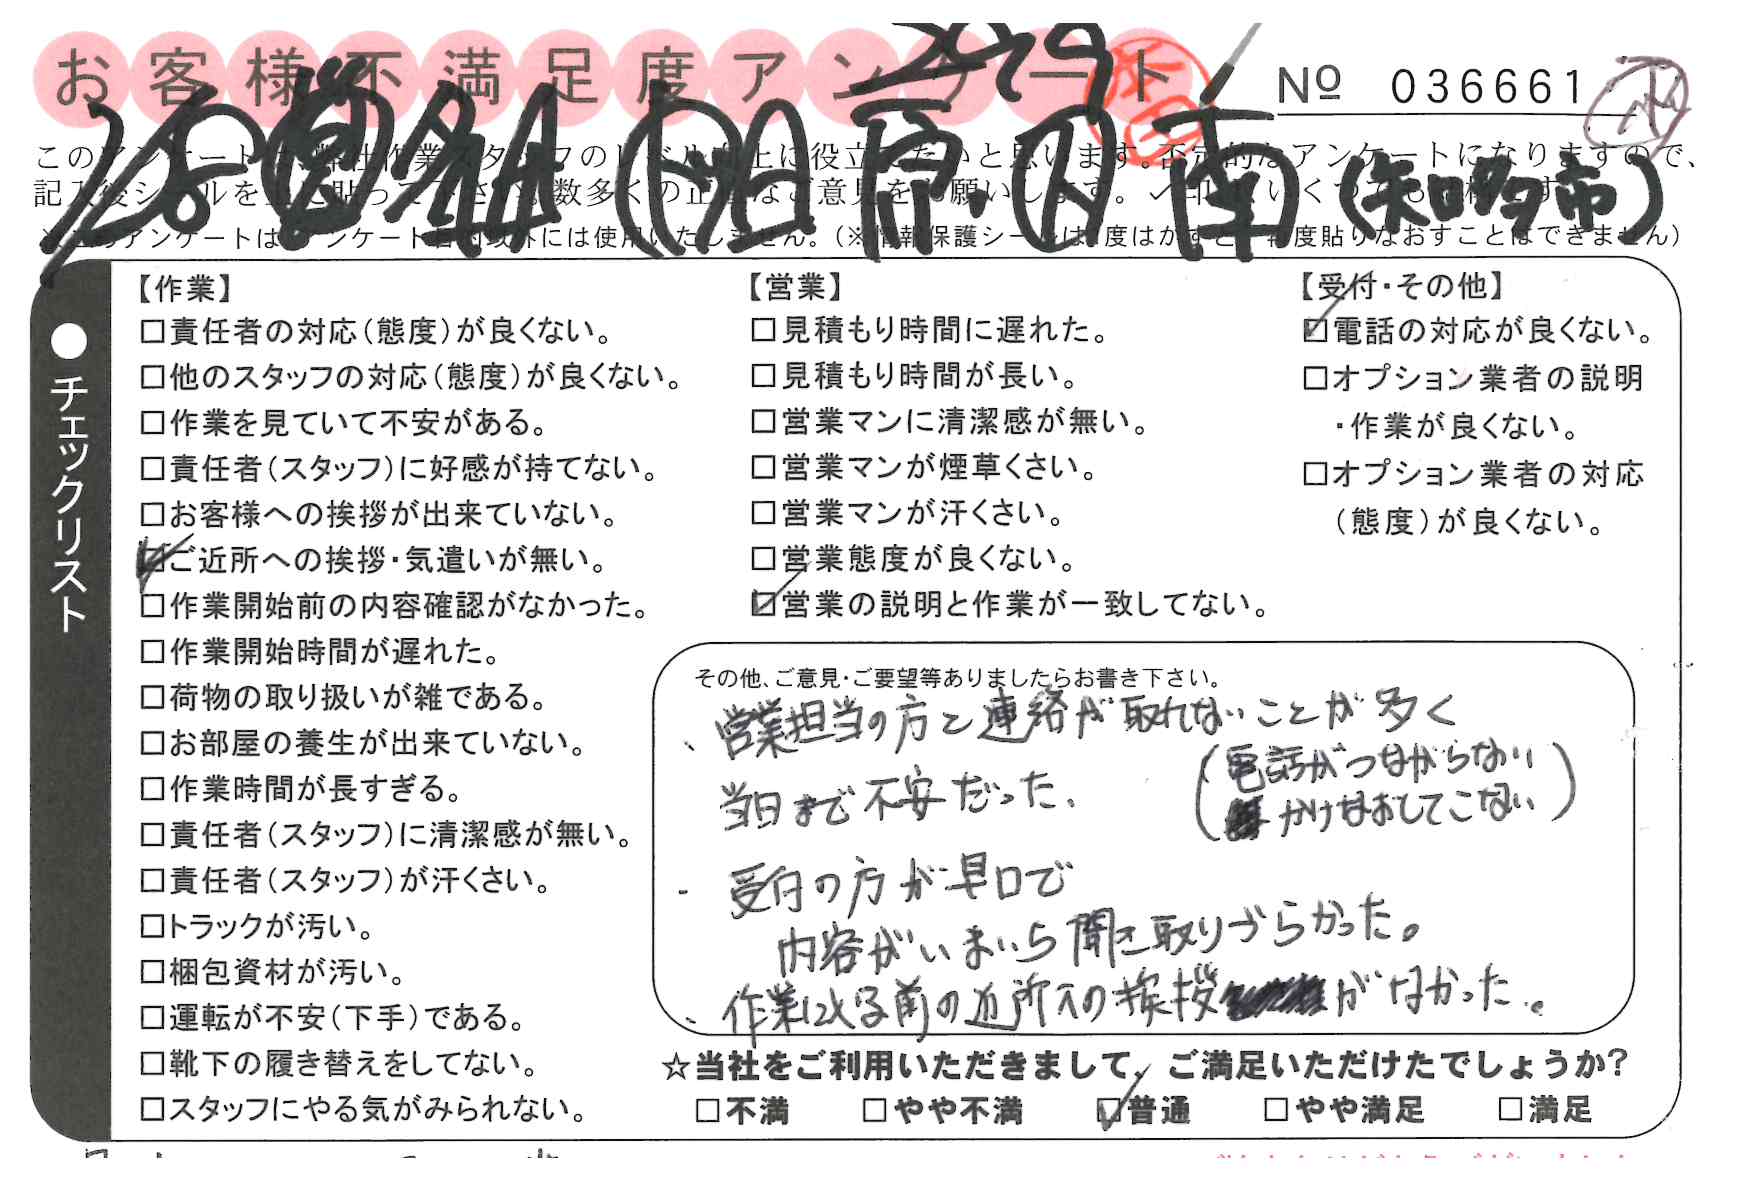 お客様不満足度アンケート
3/29
No 036661
このアンケートは、弊社作業スタッフのレベル向上に役立てたいと思います。否定的なアンケートになりますので、
記入後シールを上に貼って下さい。数多くの正直なご意見をお願いします。✓印は、いくつでも結構です
※このアンケートは、アンケート目的以外には使用いたしません。(※情報保護シールは1度はがすと、再度貼りなおすことはできません)
(知多市)
●チェックリスト
【作業】
□責任者の対応(態度)が良くない。
□他のスタッフの対応(態度)が良くない。
□作業を見ていて不安がある。
□責任者(スタッフ)に好感が持てない。
□お客様への挨拶が出来ていない。
☑ご近所への挨拶・気遣いが無い。
□作業開始前の内容確認がなかった。
□作業開始時間が遅れた。
□荷物の取り扱いが雑である。
□お部屋の養生が出来ていない。
□作業時間が長すぎる。
□責任者(スタッフ)に清潔感が無い。
□責任者(スタッフ)が汗くさい。
□トラックが汚い。
□梱包資材が汚い。
□運転が不安(下手)である。
□靴下の履き替えをしてない。
□スタッフにやる気がみられない。
【営業】
□見積もり時間に遅れた。
□見積もり時間が長い。
□営業マンに清潔感が無い。
□営業マンが煙草くさい。
□営業マンが汗くさい。
□営業態度が良くない。
☑営業の説明と作業が一致してない。
【受付・その他】
☑電話の対応が良くない。
□オプション業者の説明
・作業が良くない。
□オプション業者の対応
(態度)が良くない。
その他、ご意見・ご要望等ありましたらお書き下さい。
、営業担当の方と連絡が取れないことが多く
当日まで不安だった、
(電話がつながらない
かけなおしてこない)
- 受付の方が早口で
内容がいまいち聞き取りづらかった。
、作業に入る前の近所への挨拶がなかった。
☆当社をご利用いただきまして、ご満足いただけたでしょうか?
□不満 □やや不満 ☑普通 □やや満足 □満足